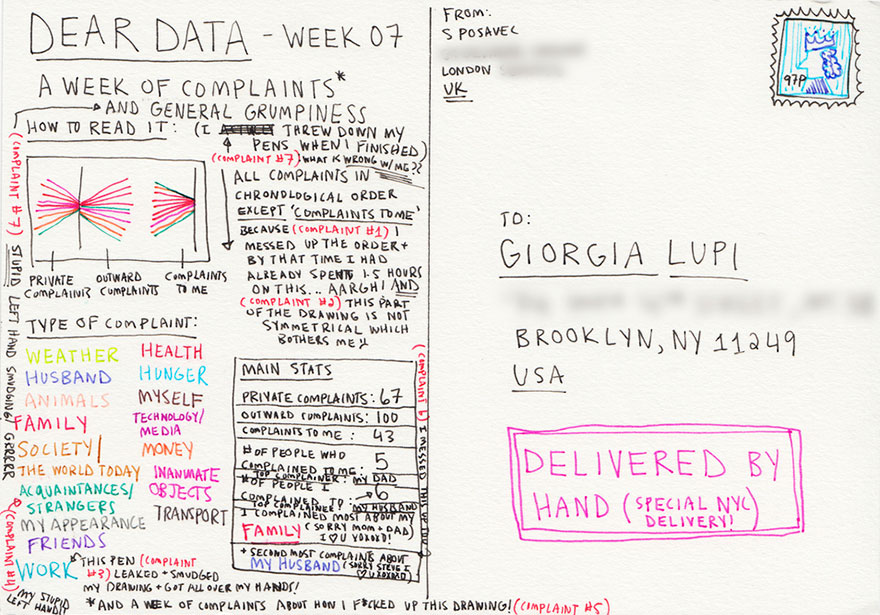 DEAR DATA - WEEK 07
A WEEK OF COMPLAINTS*
AND GENERAL GRUMPINESS
HOW TO READ IT:
(I THREW DOWN MY
PENS WHEN I FINISHED)
(COMPLAINT #7) WHAT IS WRONG W/ME??
ALL COMPLAINTS IN
CHRONOLOGICAL ORDER
EXLEPT 'COMPLAINTS TO ME'
BECAUSE (COMPLAINT #1) I
MESSED UP THE ORDER +
BY THAT TIME I HAD
ALREADY SPENT 1.5 HOURS
ON THIS... AARGH! AND
(COMPLAINT #2) THIS PART
OF THE DRAWING IS NOT
SYMMETRICAL WHICH
BOTHERS ME!!
PRIVATE
COMPLAINTS
OUTWARD
COMPLAINTS
COMPLAINTS
TO ME
(COMPLAINT #7) STUPID LEFT HAND SMUDGING! GRRRRR
TYPE OF COMPLAINT:
WEATHER
HUSBAND
ANIMALS
FAMILY
SOCIETY/
THE WORLD TODAY
ACQUAINTANCES/
STRANGERS
MY APPEARANCE
FRIENDS
WORK
HEALTH
HUNGER
MYSELF
TECHNOLOGY/
MEDIA
MONEY
INANIMATE
OBJECTS
TRANSPORT
THIS PEN (COMPLAINT
#3) LEAKED + SMUDGED
MY DRAWING + GOT ALL OVER MY HANDS!
(COMPLAINT #4)
MY STUPID
LEFT HAND!!
MAIN STATS
PRIVATE COMPLAINTS: 67
OUTWARD COMPLAINTS: 100
COMPLAINTS TO ME: 43
# OF PEOPLE WHO
COMPLAINED TO ME: 5
TOP COMPLAINER: MY DAD
# OF PEOPLE I
COMPLAINED TO: 6
TOP COMPLAINEE: MY HUSBAND
I COMPLAINED MOST ABOUT MY
FAMILY (SORRY MOM + DAD)
I ♡ U XOXOXO!
+ SECOND MOST COMPLAINTS ABOUT
MY HUSBAND (SORRY STEVE I
♡ U XOXOXO)
(COMPLAINT 6) I MESSED THIS UP TOO
*AND A WEEK OF COMPLAINTS ABOUT HOW I F*CKED UP THIS DRAWING! (COMPLAINT #5)
FROM:
S POSAVEC
LONDON
UK
97P
TO:
GIORGIA LUPI
BROOKLYN, NY 11249
USA
DELIVERED BY
HAND (SPECIAL NYC
DELIVERY!)